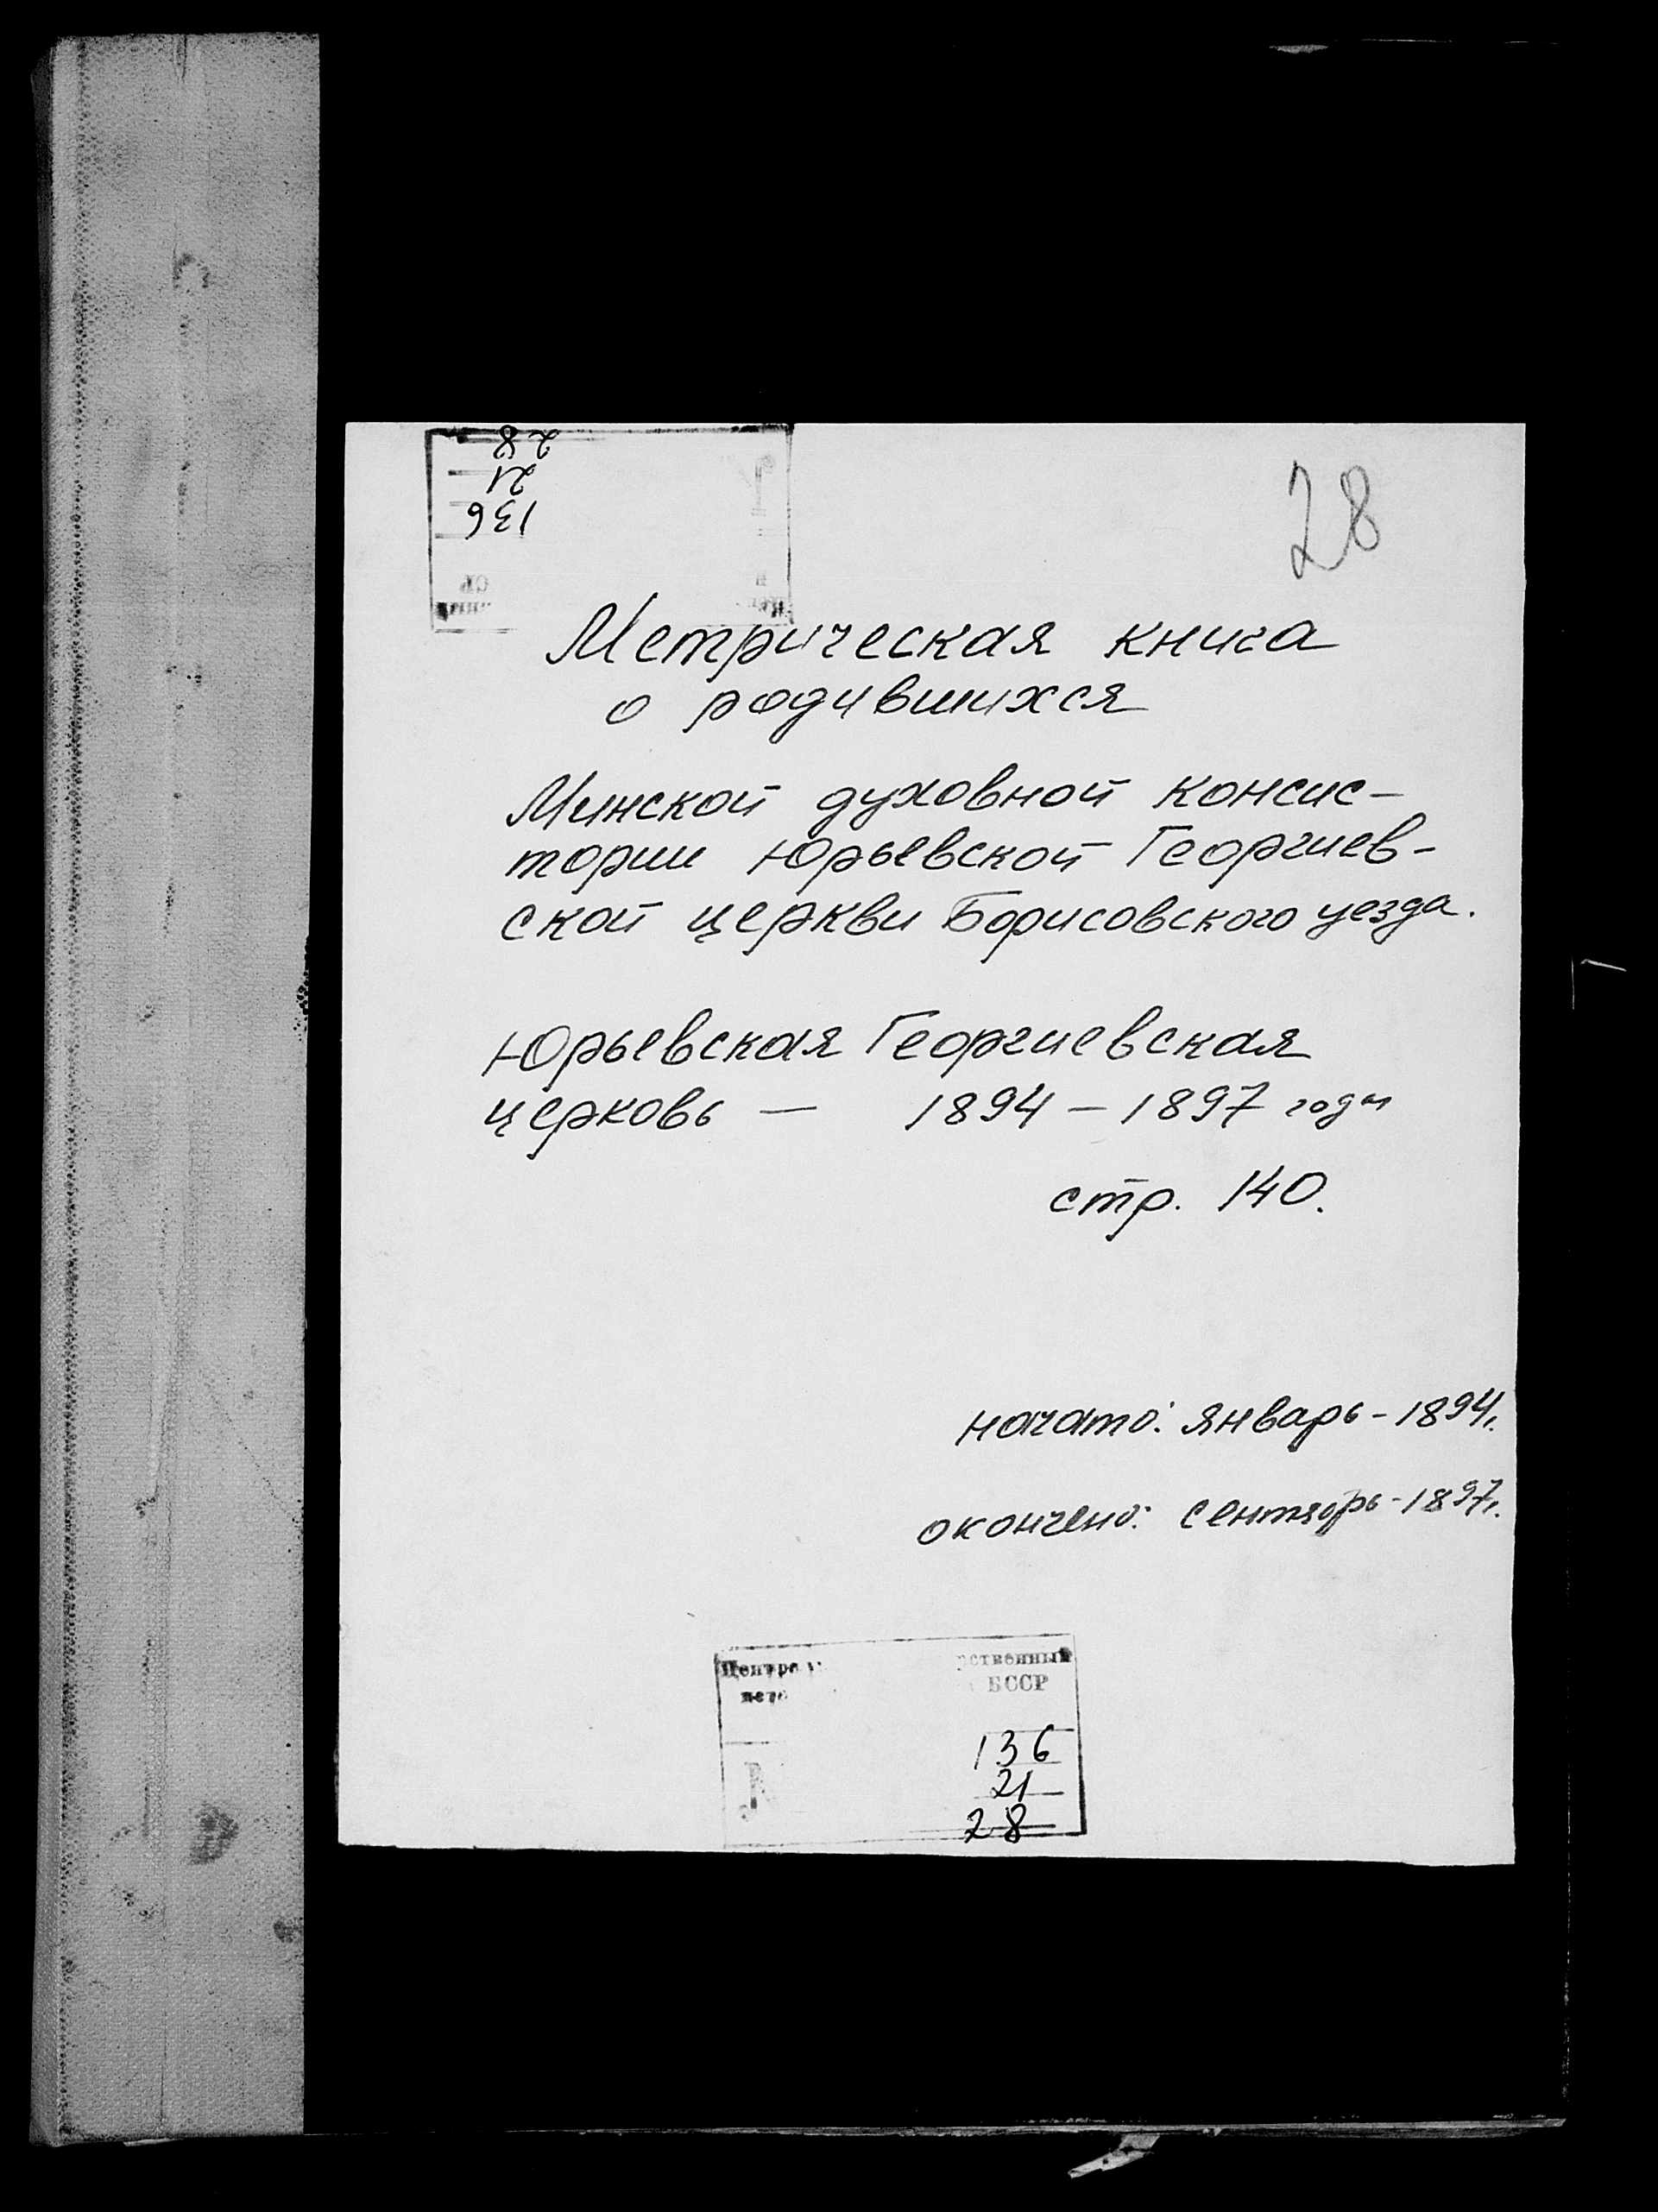 28
21
136
28
Метрическая книга
о родившихся
Минской духовной консис-
тории Юрьевской Георгиев-
ской церкви Борисовского уезда.
Юрьевская Георгиевская
церковь — 1894 – 1897 годы
стр. 140.
начато: январь - 1894г.
окончено: сентябрь - 1897г.
рственный
БССР
136
21
28